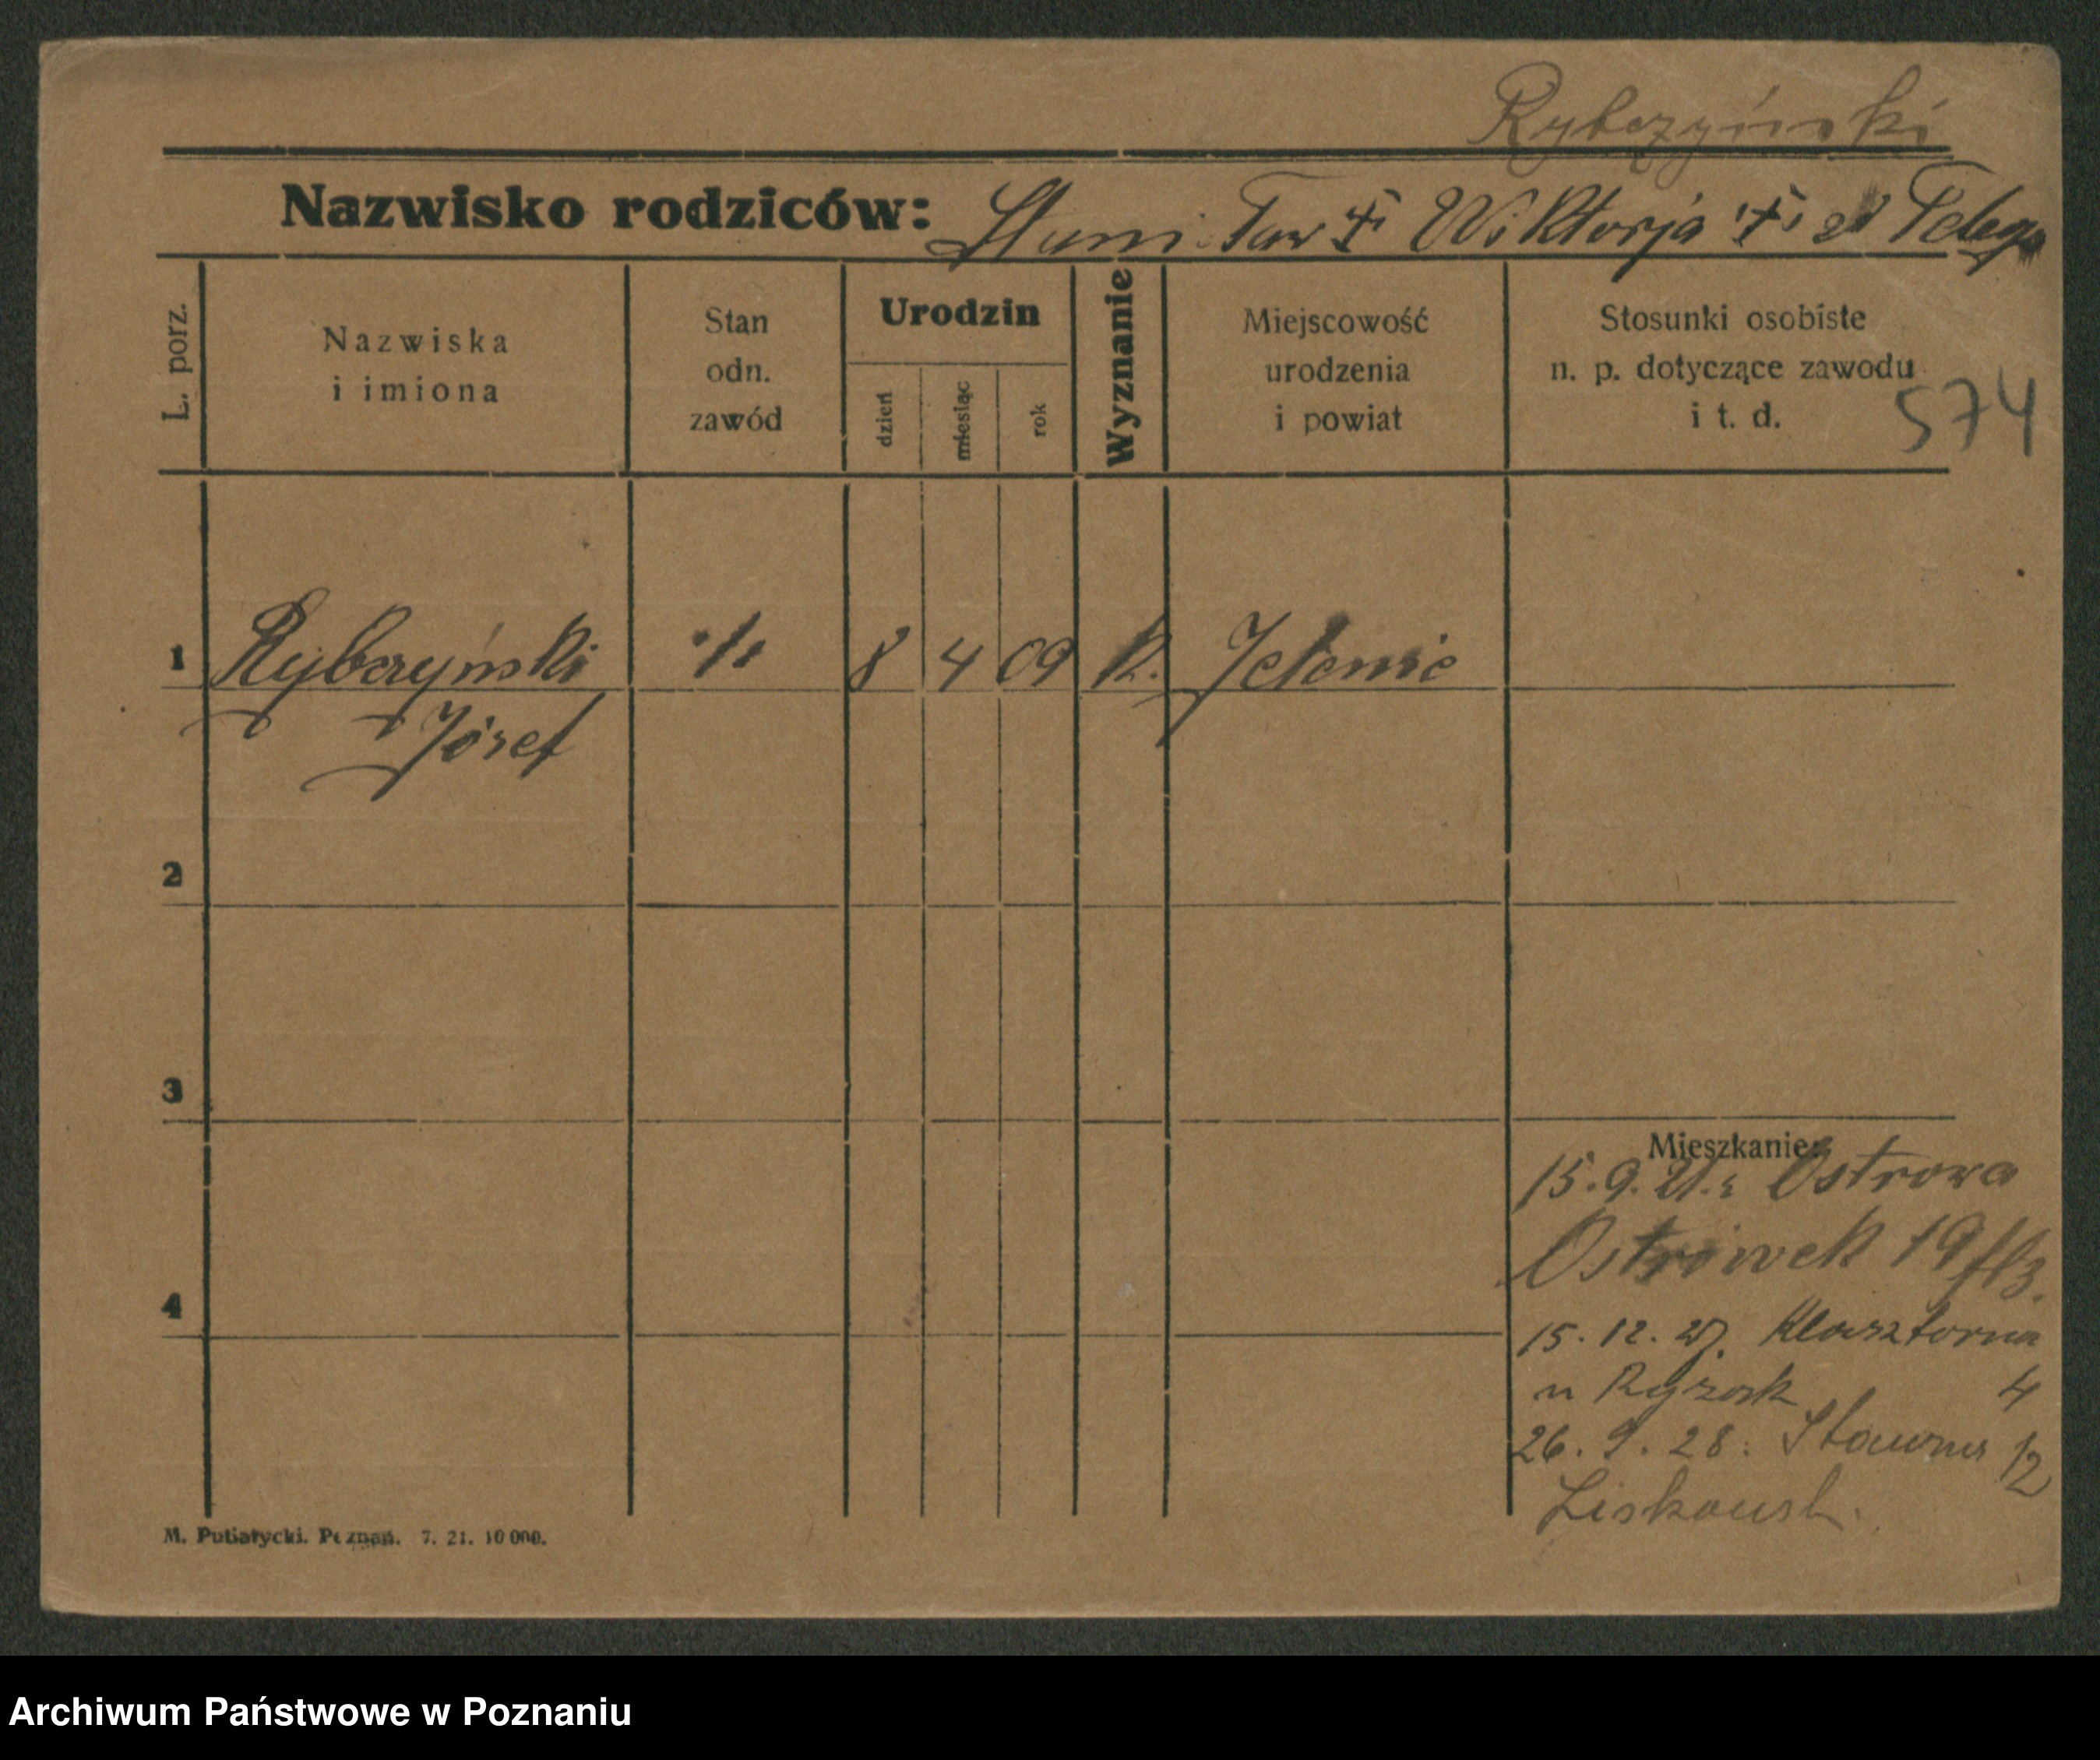 Rybczyński
Nazwisko rodziców: Stanisław Wiktorja
L. porz.
Nazwiska
i imiona
Stan
odn.
zawód
Urodzin
dzień
miesiąc
rok
Wyznanie
Miejscowość
urodzenia
i powiat
Stosunki osobiste
n. p. dotyczące zawodu
i t. d.
574
1 Rybczyński 8 4 09 k.
Józef
2
3
4
Mieszkanie:
15.9.21. z Ostrowa
Ostrówek 19
15.12.27. Klasztorna
4
26.9.28. Stawna 12
M. Putiatycki. Poznań. 7. 21. 10 000.
Archiwum Państwowe w Poznaniu